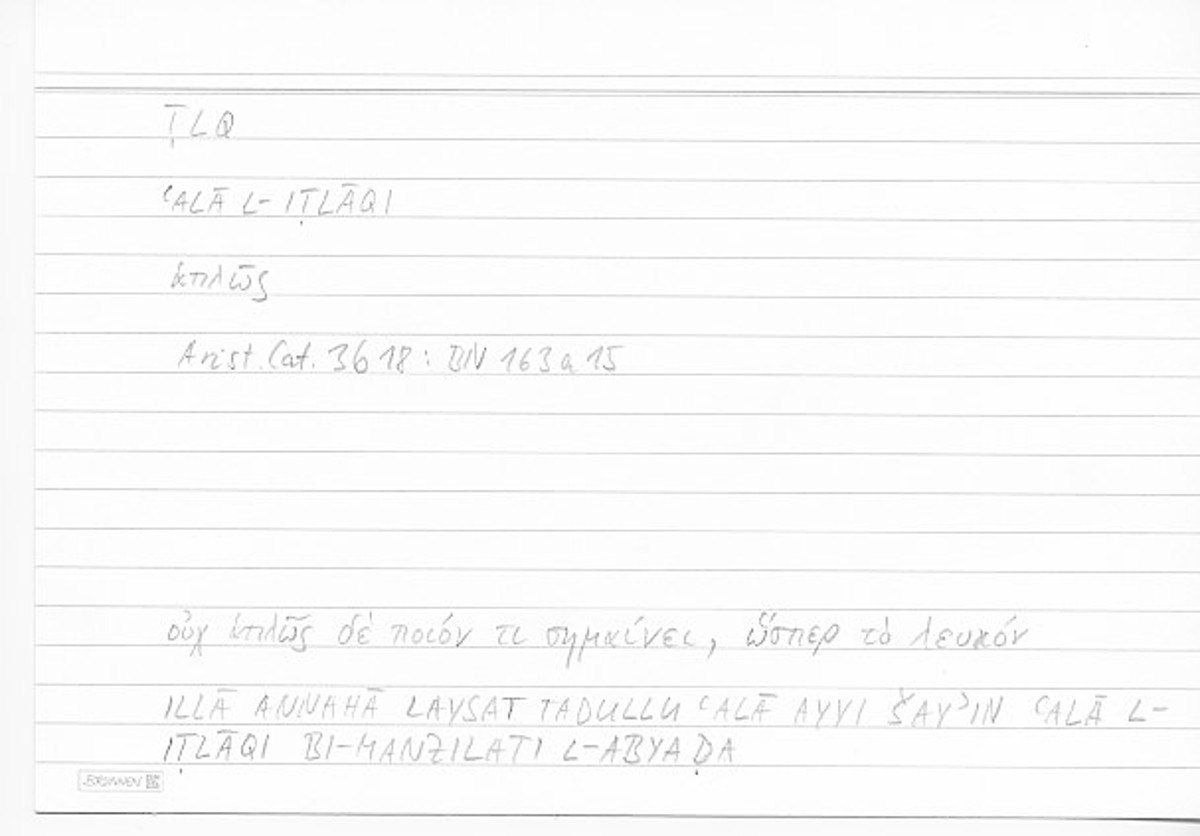 ṬLQ
ʿALĀ L-IṬLĀQI
ἁπλῶς
Arist. Cat. 3b18: BN 163a15
οὐχ ἁπλῶς δὲ ποιόν τι σημαίνει, ὥσπερ τὸ λευκόν
ILLĀ ANNAHĀ LAYSAT TADULLU ʿALĀ AYYI ŠAYʾIN ʿALĀ L-
IṬLĀQI BI-MANZILATI L-ABYAḌA
BRUNNEN